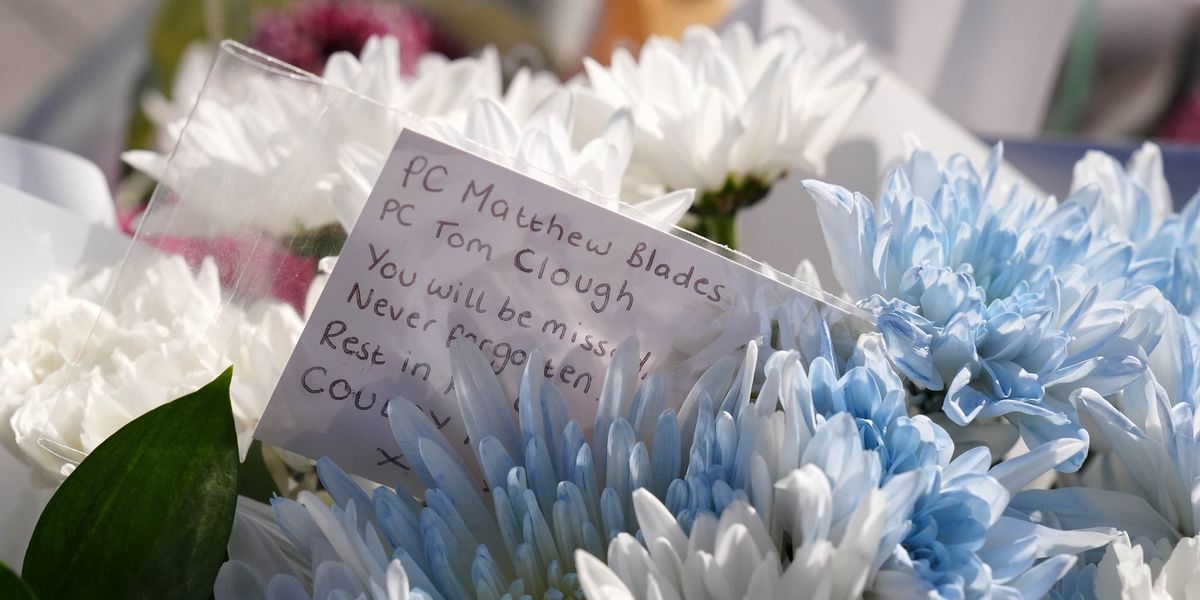 PC Matthew Blades
PC Tom Clough
You will be
Never forgotten
Rest in
x